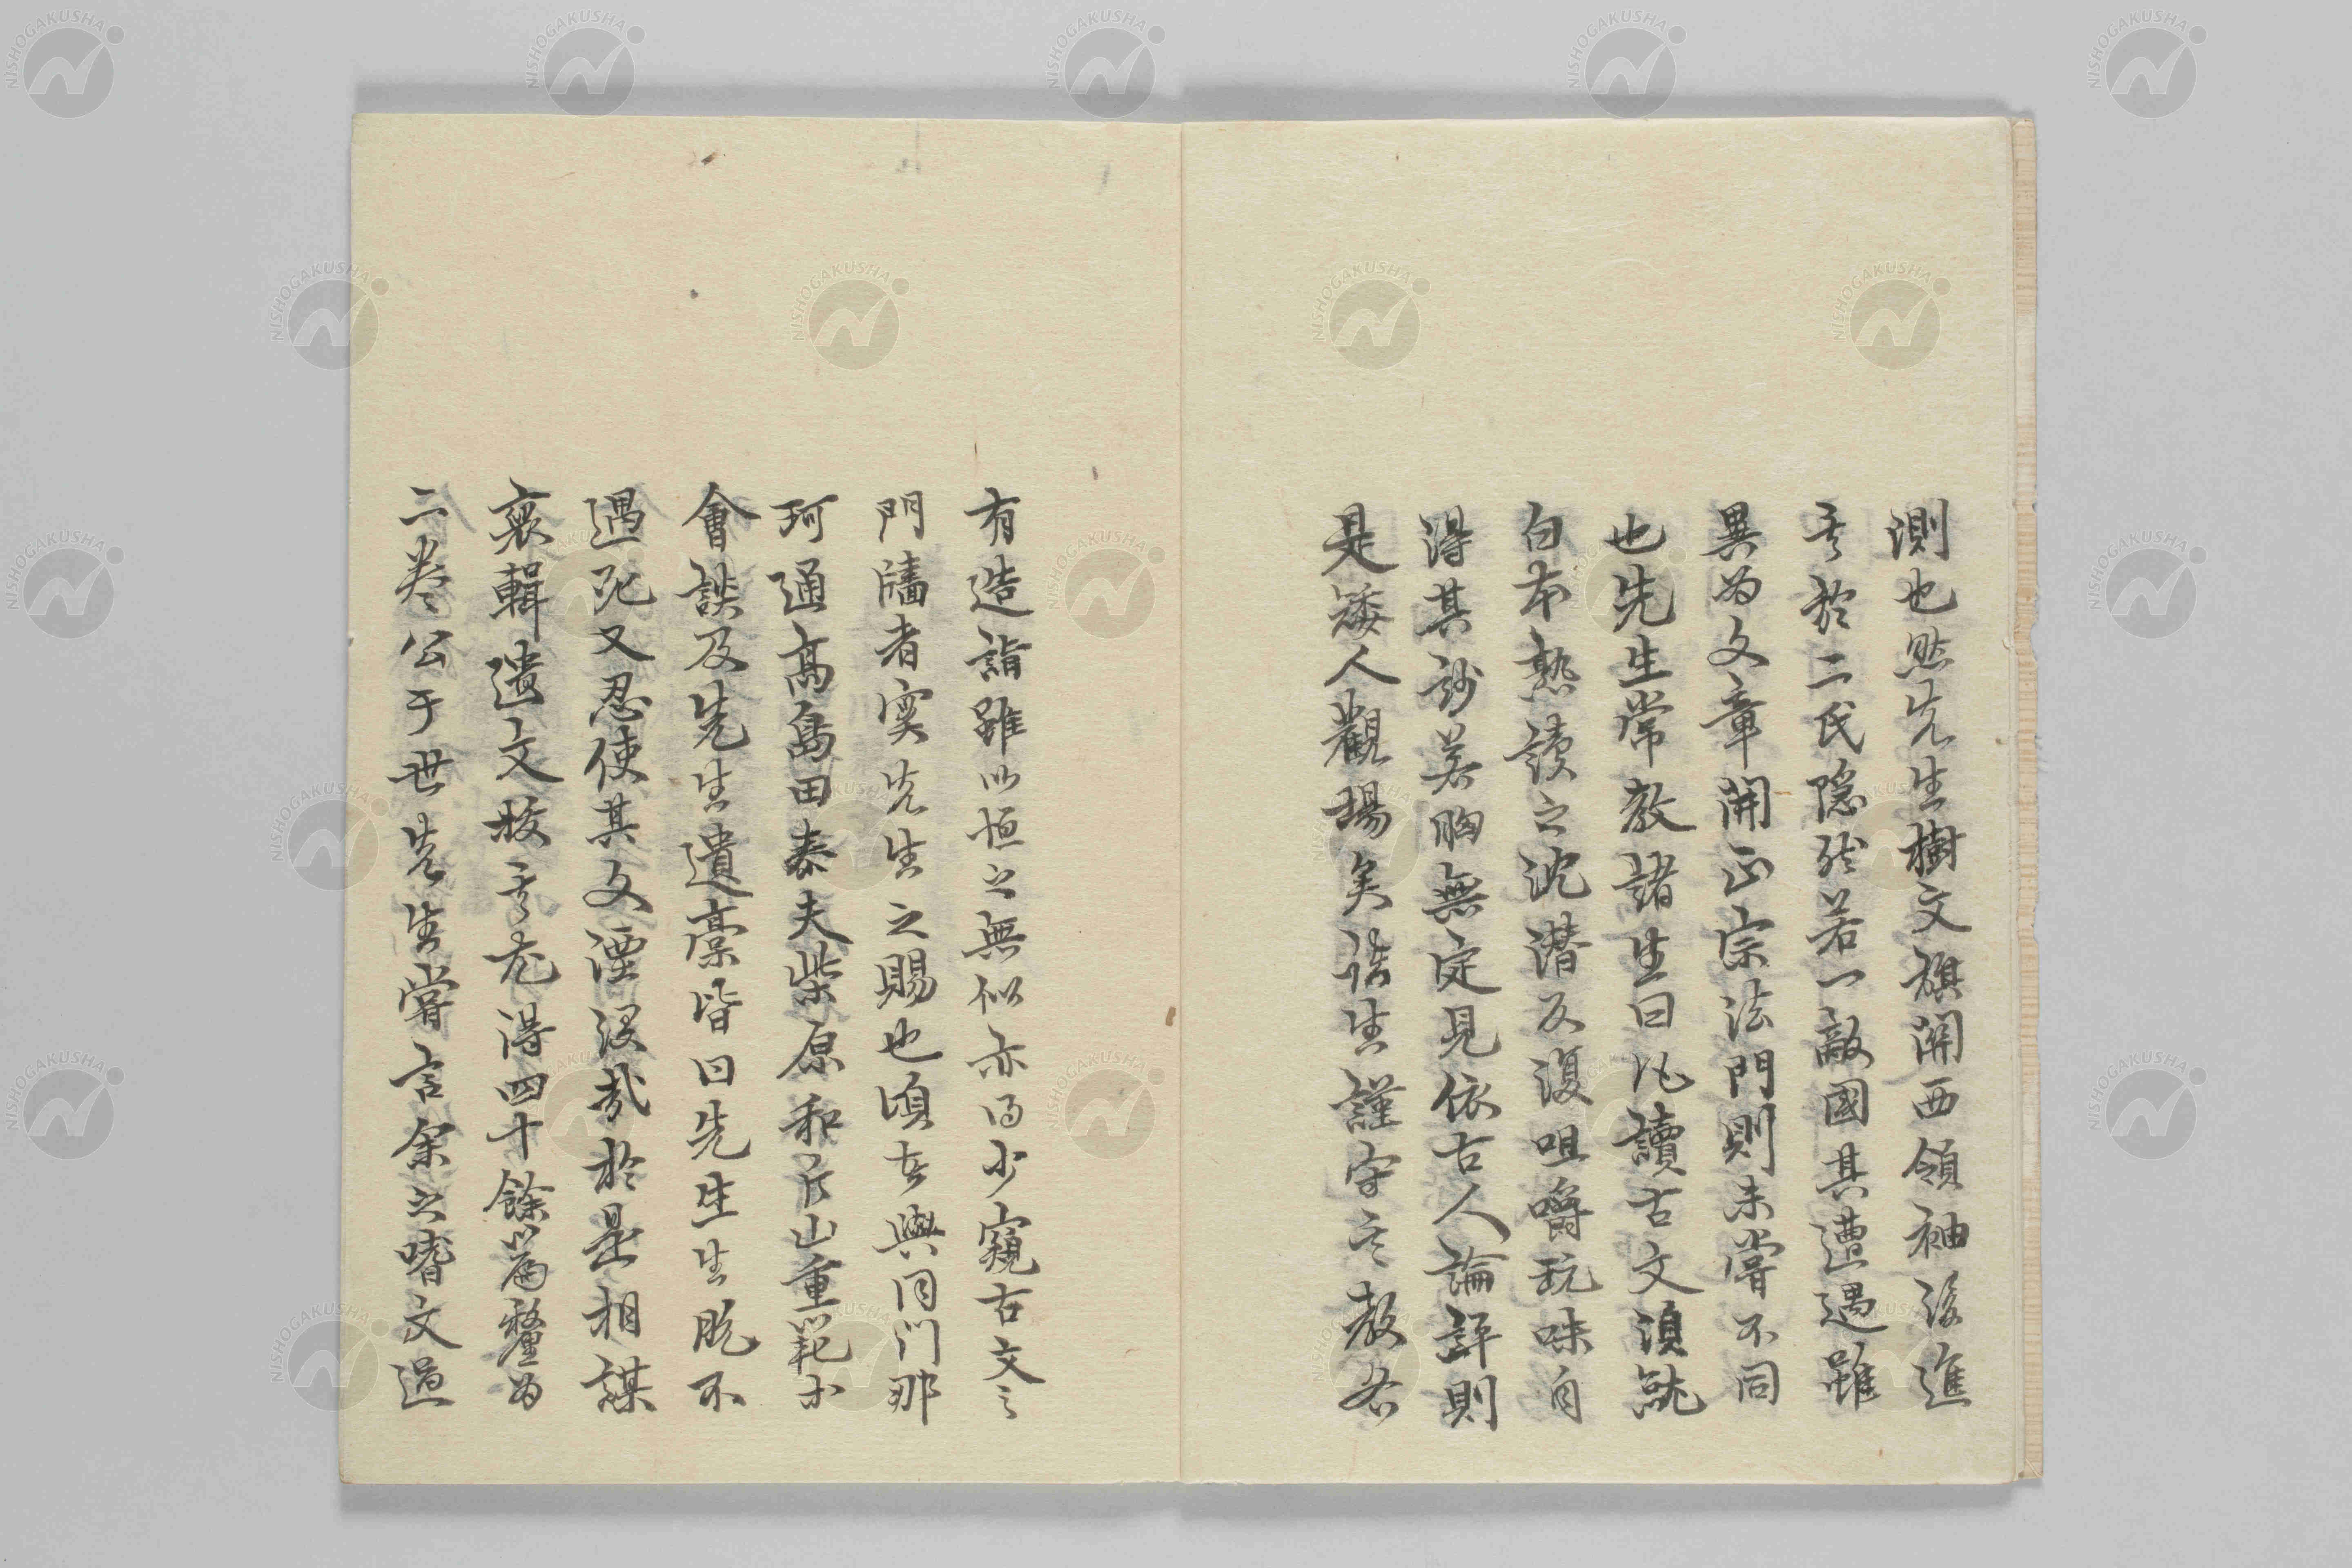 測也然先生樹文旗開西領袖後進
其於二氏隠然若一敵國其遭遇雖
異為文章開正宗法門則未嘗不同
也先生常教諸生曰凡讀古文須就
白本熟讀之沈潜反復咀嚼玩味自
得其妙若胸無定見依古人論評則
是矮人觀場矣諸生謹守其教各
有造詣雖以恒之無似亦得少窺古文之
門牆者實先生之賜也頃者與同門那
珂通高島田泰夫柴原和片山重範等
會談及先生遺稾皆曰先生生既不
遇死又忍使其文湮没哉於是相謀
裒輯遺文校其尤得四十餘篇釐為
二巻公于世先生嘗言余之嗜文過
NISHOGAKUSHA